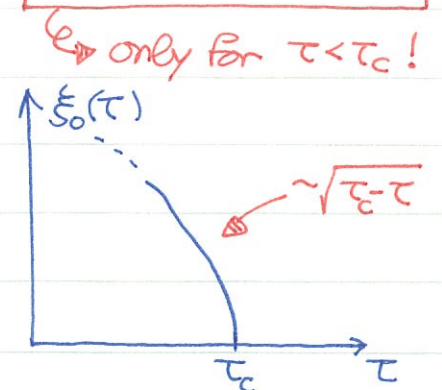 ↳ only for τ<τc!
ξ₀(τ)
~√(τc-τ)
τc
τ